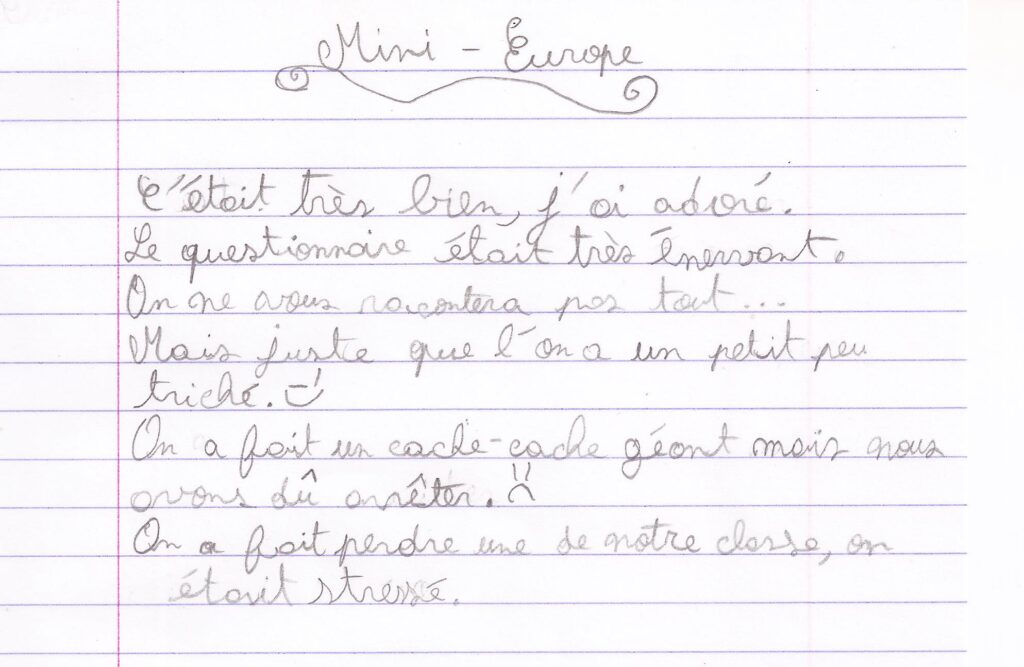 Mini - Europe
C'était très bien, j'ai adoré.
Le questionnaire était très énervant.
On ne vous racontera pas tout...
Mais juste que l'on a un petit peu
triché.
On a fait un cache-cache géant mais nous
avons dû arrêter.
On a fait perdre une de notre classe, on
était stressé.